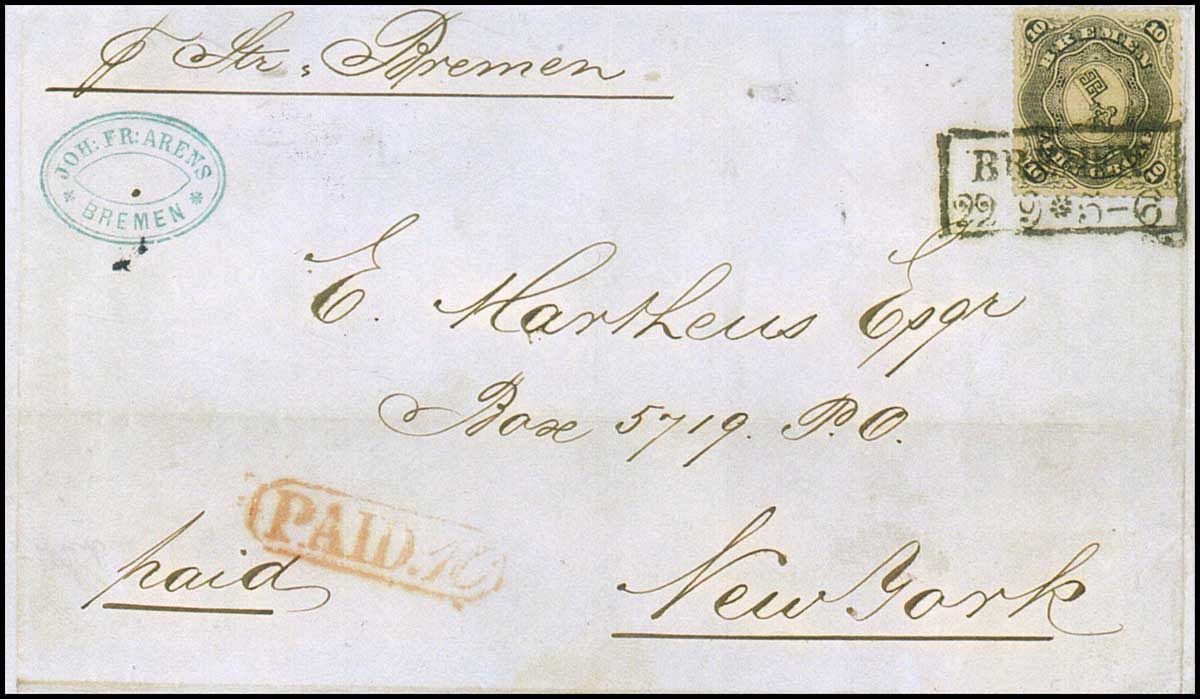 ℘ Str. Bremen
10 10
BREMEN
10 10
JOH: FR: ARENS
* BREMEN *
BREMEN
22 9 * 5-6
E. Martheus Esqr
Box 5719. P.O.
PAID.
paid
New York